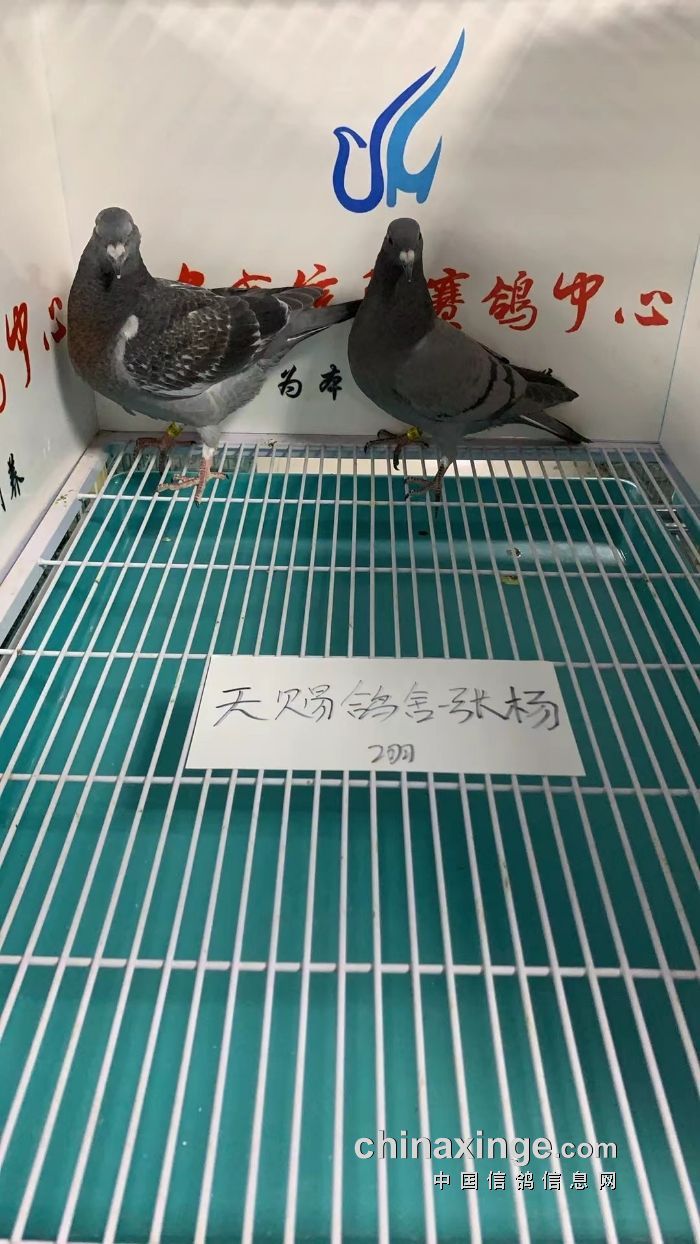 信
赛鸽中心
中心
为本
养
天赐鸽舍-张杨
2羽
chinaxinge.com
中国信鸽信息网